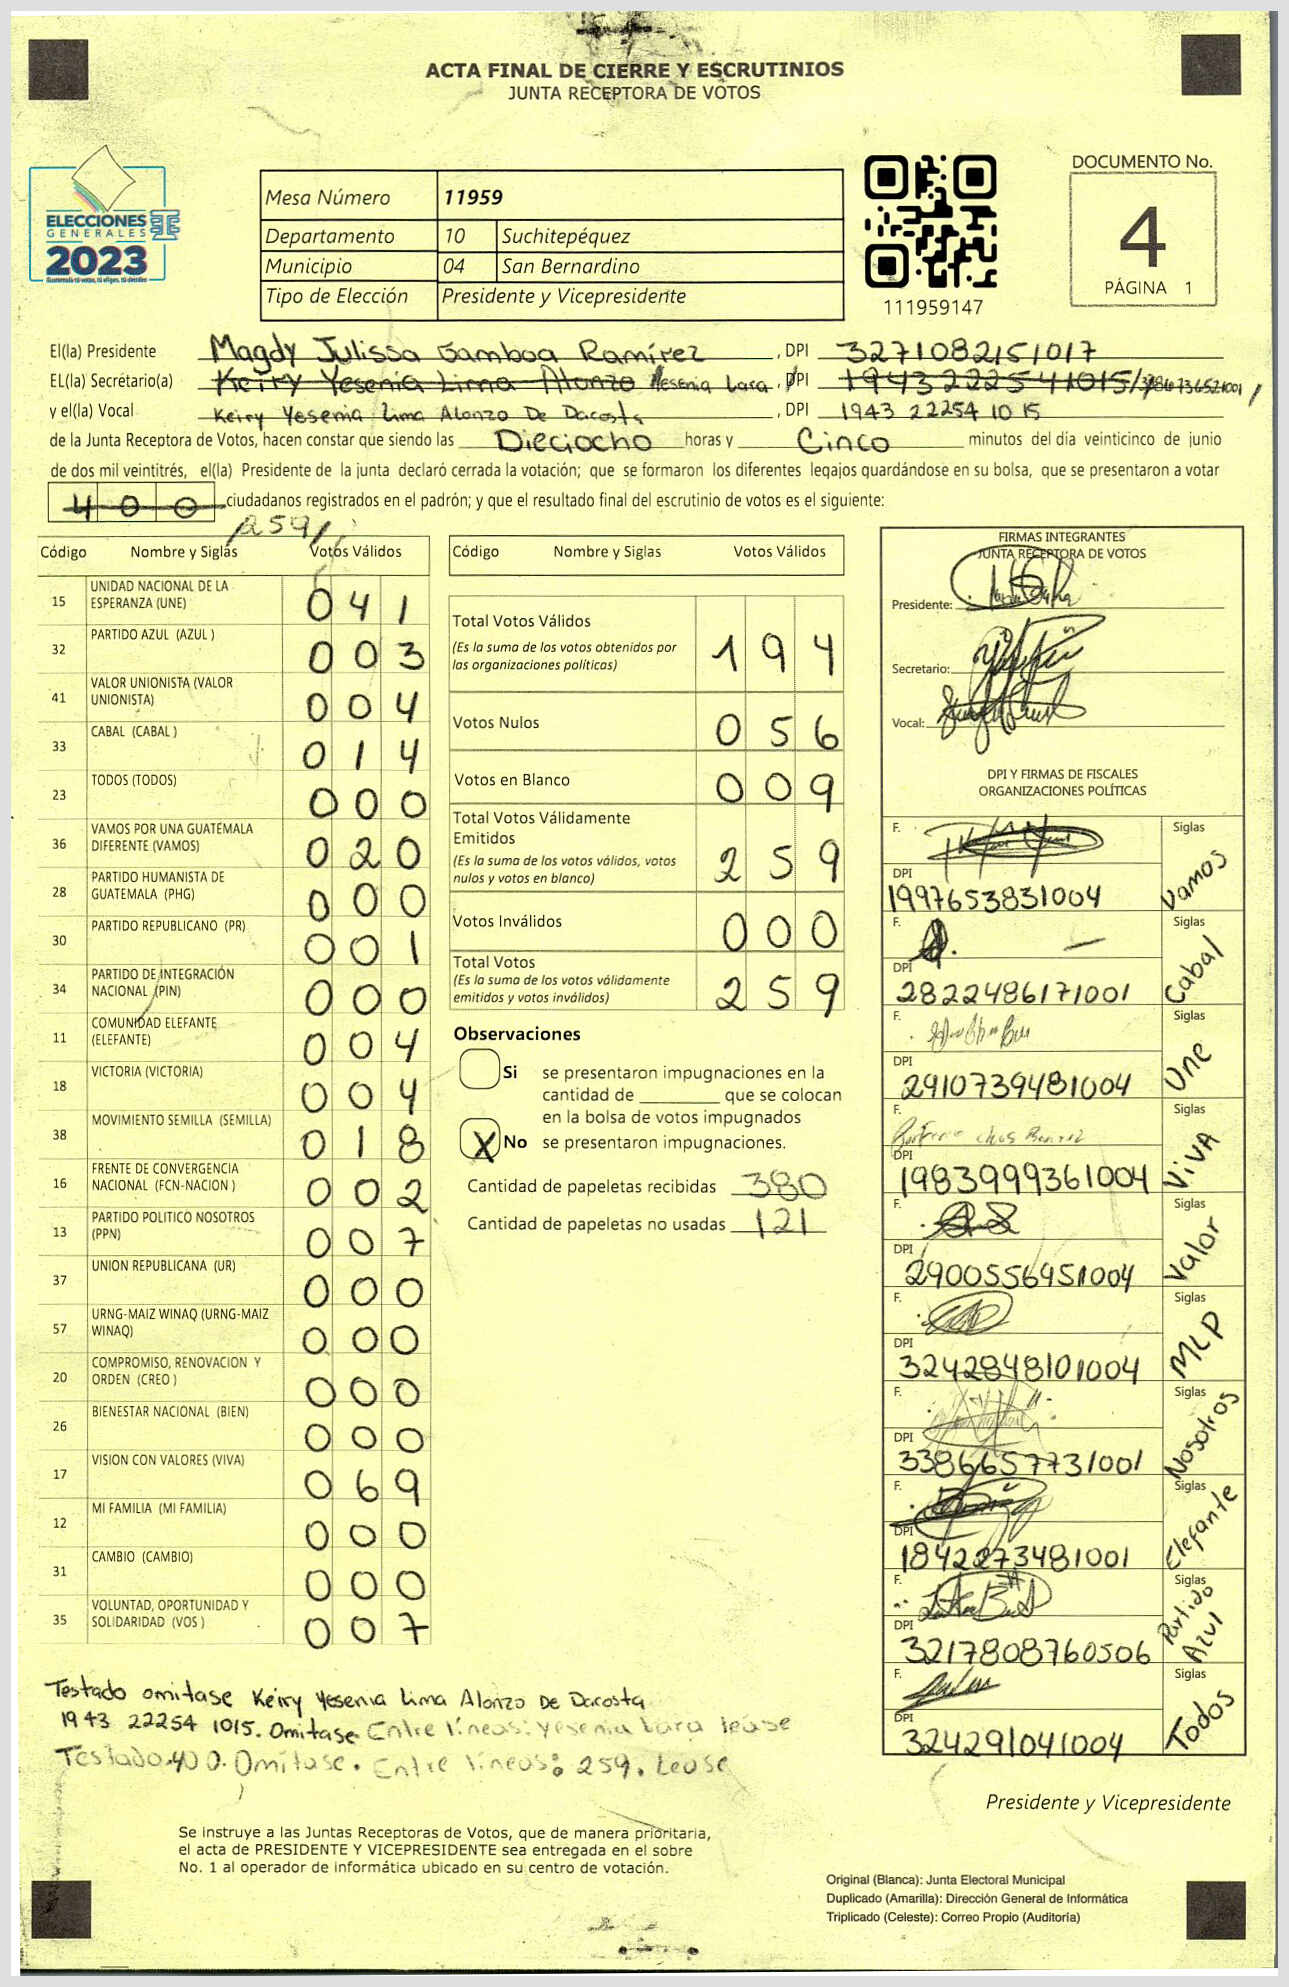 ACTA FINAL DE CIERRE Y ESCRUTINIOS
JUNTA RECEPTORA DE VOTOS
ELECCIONES
GENERALES
2023
Mesa Número 11959
Departamento 10 Suchitepéquez
Municipio 04 San Bernardino
Tipo de Elección Presidente y Vicepresidente
111959147
DOCUMENTO No.
4
PÁGINA 1
El(la) Presidente Magdy Julissa Gamboa Ramírez, DPI 3271082151017
EL(la) Secretario(a) Keiry Yesenia Lima Alonzo Yesenia Lara, DPI 1943222541015
y el(la) Vocal Keiry Yesenia Lima Alonzo De Dacosta, DPI 1943 22254 1015
de la Junta Receptora de Votos, hacen constar que siendo las Dieciocho horas y Cinco minutos del día veinticinco de junio
de dos mil veintitrés, el(la) Presidente de la junta declaró cerrada la votación; que se formaron los diferentes legajos guardándose en su bolsa, que se presentaron a votar
400 ciudadanos registrados en el padrón; y que el resultado final del escrutinio de votos es el siguiente:
259
Código Nombre y Siglas Votos Válidos
15 UNIDAD NACIONAL DE LA ESPERANZA (UNE) 041
32 PARTIDO AZUL (AZUL ) 003
41 VALOR UNIONISTA (VALOR UNIONISTA) 004
33 CABAL (CABAL ) 014
23 TODOS (TODOS) 000
36 VAMOS POR UNA GUATEMALA DIFERENTE (VAMOS) 020
28 PARTIDO HUMANISTA DE GUATEMALA (PHG) 000
30 PARTIDO REPUBLICANO (PR) 001
34 PARTIDO DE INTEGRACIÓN NACIONAL (PIN) 000
11 COMUNIDAD ELEFANTE (ELEFANTE) 004
18 VICTORIA (VICTORIA) 004
38 MOVIMIENTO SEMILLA (SEMILLA) 018
16 FRENTE DE CONVERGENCIA NACIONAL (FCN-NACION ) 002
13 PARTIDO POLITICO NOSOTROS (PPN) 007
37 UNION REPUBLICANA (UR) 000
57 URNG-MAIZ WINAQ (URNG-MAIZ WINAQ) 000
20 COMPROMISO, RENOVACION Y ORDEN (CREO ) 000
26 BIENESTAR NACIONAL (BIEN) 000
17 VISION CON VALORES (VIVA) 069
12 MI FAMILIA (MI FAMILIA) 000
31 CAMBIO (CAMBIO) 000
35 VOLUNTAD, OPORTUNIDAD Y SOLIDARIDAD (VOS ) 007
Código Nombre y Siglas Votos Válidos
Total Votos Válidos 194
(Es la suma de los votos obtenidos por
las organizaciones políticas)
Votos Nulos 056
Votos en Blanco 009
Total Votos Válidamente
Emitidos 259
(Es la suma de los votos válidos, votos
nulos y votos en blanco)
Votos Inválidos 000
Total Votos 259
(Es la suma de los votos válidamente
emitidos y votos inválidos)
Observaciones
Si se presentaron impugnaciones en la
cantidad de ________ que se colocan
en la bolsa de votos impugnados
X No se presentaron impugnaciones.
Cantidad de papeletas recibidas 380
Cantidad de papeletas no usadas 121
FIRMAS INTEGRANTES
JUNTA RECEPTORA DE VOTOS
Presidente:
Secretario:
Vocal:
DPI Y FIRMAS DE FISCALES
ORGANIZACIONES POLÍTICAS
F. Siglas Vamos
DPI 1997653831004
F. Siglas Cabal
DPI 2822486171001
F. Siglas Une
DPI 2910739481004
F. Siglas ViVA
DPI 1983999361004
F. Siglas Valor
DPI 2900556951004
F. Siglas MLP
DPI 3242848101004
F. Siglas Nosotros
DPI 3386657731001
F. Siglas Elefante
DPI 1842273481001
F. Siglas Partido Azul
DPI 3217808760506
F. Siglas Todos
DPI 324291041004
Testado omitase Keiry Yesenia Lima Alonzo De Dacosta
1943 22254 1015. Omitase Entre líneas: yesenia Lara lease
Testado 400. Omítase. Entre líneas: 259. Lease
Presidente y Vicepresidente
Se instruye a las Juntas Receptoras de Votos, que de manera prioritaria,
el acta de PRESIDENTE Y VICEPRESIDENTE sea entregada en el sobre
No. 1 al operador de informática ubicado en su centro de votación.
Original (Blanca): Junta Electoral Municipal
Duplicado (Amarilla): Dirección General de Informática
Triplicado (Celeste): Correo Propio (Auditoría)